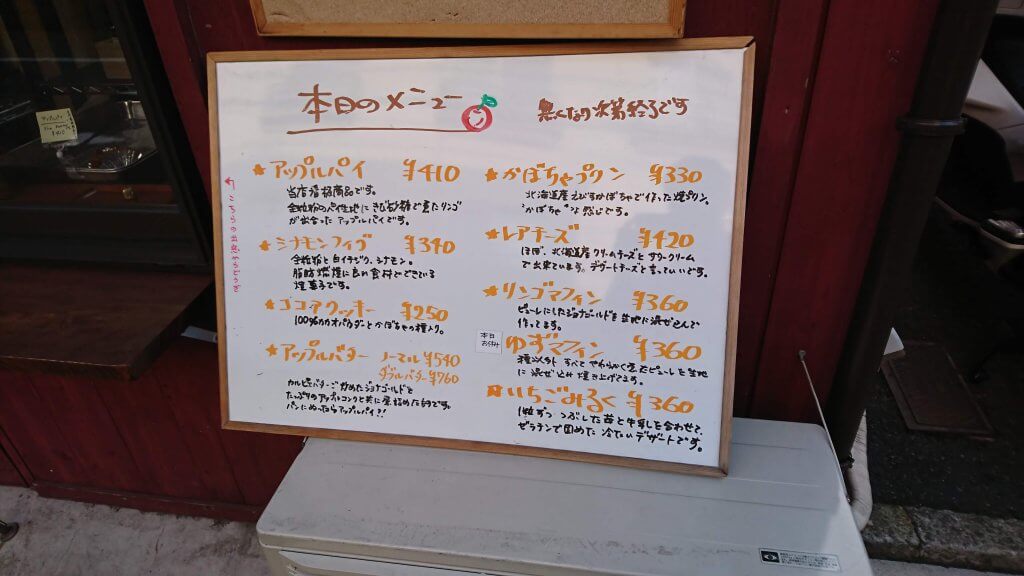 本日のメニュー
無くなり次第終了です
★アップルパイ ¥410
当店看板商品です。
全粒粉のパイ生地にきび砂糖で煮たリンゴ
が出合ったアップルパイです。
★シナモンフィグ ¥340
全粒粉と白イチジク、シナモン。
脂肪燃焼に良い食材でできている
焼菓子です。
★ココアクッキー ¥250
100%カカオパウダーとかぼちゃの種入り。
★アップルバター ノーマル ¥540
ダブルバター ¥760
カルピスバターで炒めたジョナゴールドを
たっぷりのアップルコンクと共に煮詰めた的です。
パンにぬったらアップルパイ?!
★かぼちゃプリン ¥330
北海道産えびすかぼちゃで作った焼プリン。
"かぼちゃ"な感じです。
★レアチーズ ¥420
ほぼ、北海道産クリームチーズとサワークリーム
で出来ています。デザートチーズと言っていいです。
★リンゴマフィン ¥360
ピューレにしたジョナゴールドを生地に混ぜこんで
作ってます。
本日
お休み
ゆずマフィン ¥360
種以外すべてやわらかく煮たピューレを生地
に混ぜ込み焼き上げてます。
★いちごみるく ¥360
1粒ずつつぶした苺と牛乳を合わせて
ゼラチンで固めた冷たいデザートです。